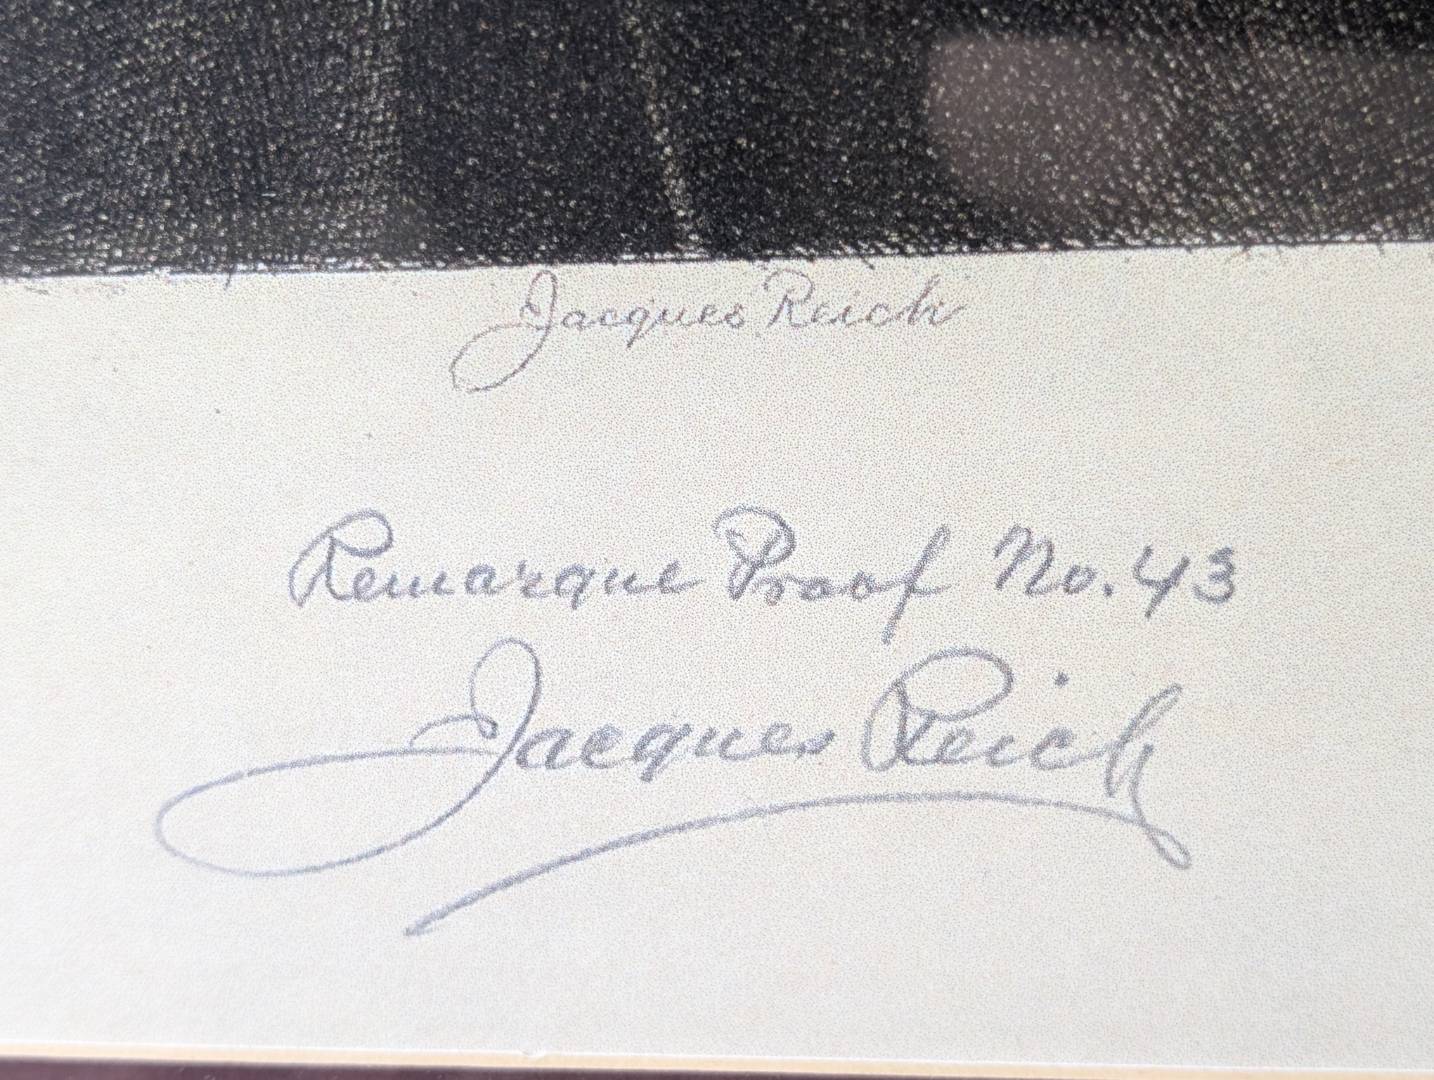 Jacques Reich
Remarque Proof No. 43
Jacques Reich